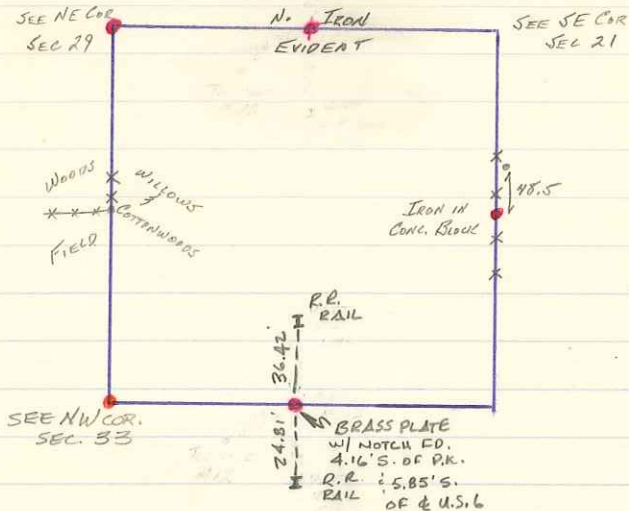 SEE NE COR
SEC 29
N. IRON
EVIDENT
SEE SE COR
SEC 21
WOODS
WILLOWS
COTTONWOODS
FIELD
48.5
IRON IN
CONC. BLOCK
R.R.
RAIL
36.42'
SEE NW COR.
SEC. 33
24.81'
BRASS PLATE
W/ NOTCH FD.
4.16' S. OF P.K.
& 5.85' S.
OF ℄ U.S. 6
R.R.
RAIL